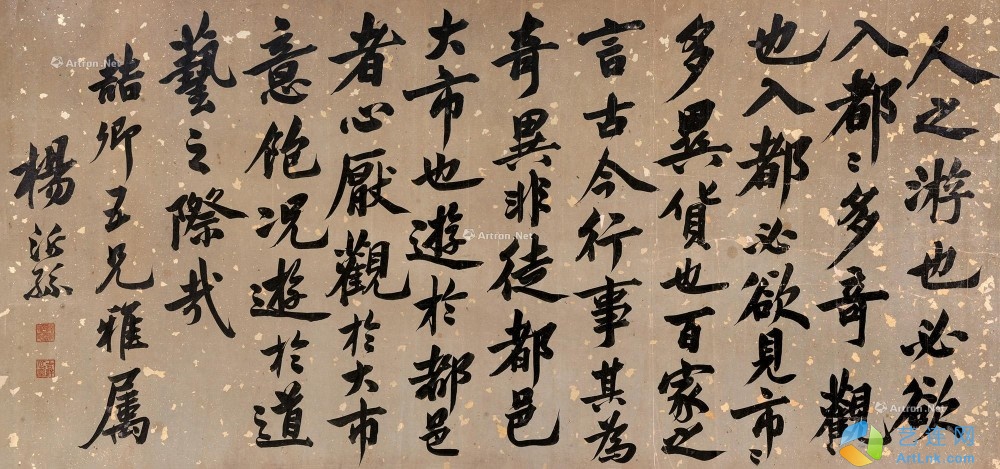 人之游也必欲
入都〻多奇觀
也入都必欲見市〻
多異貨也百家之
言古今行事其為
奇異非徒都邑
大市也遊於都邑
者心厭觀於大市
意飽況遊於道
藝之際哉
喆卿五兄雅属
楊沂孫
Artron.Net
Artron.Net
Artron.Net
Artron.Net
艺连网
ArtLnk.com